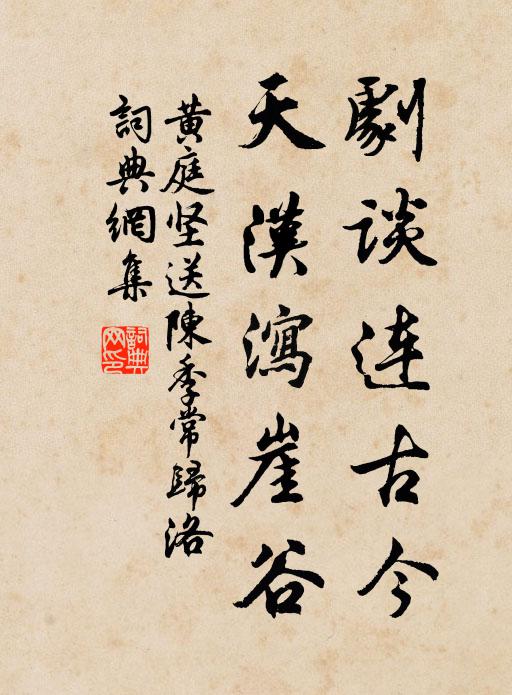 劇谈连古今
天漢瀉崖谷
黄庭坚送陳季常歸洛
詞典網集
詞典网印